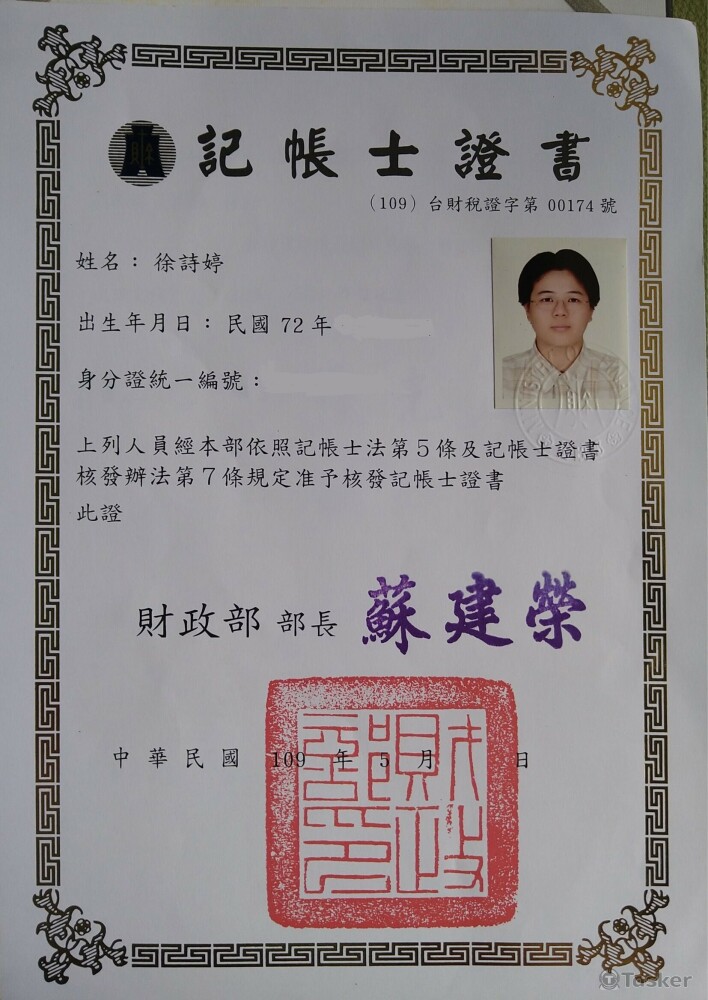 記帳士證書
（109）台財稅證字第 00174 號
姓名：徐詩婷
出生年月日：民國 72 年
身分證統一編號：
上列人員經本部依照記帳士法第5條及記帳士證書
核發辦法第7條規定准予核發記帳士證書
此證
財政部 部長 蘇建榮
財政部印
中華民國 109 年 5 月 日
Tasker